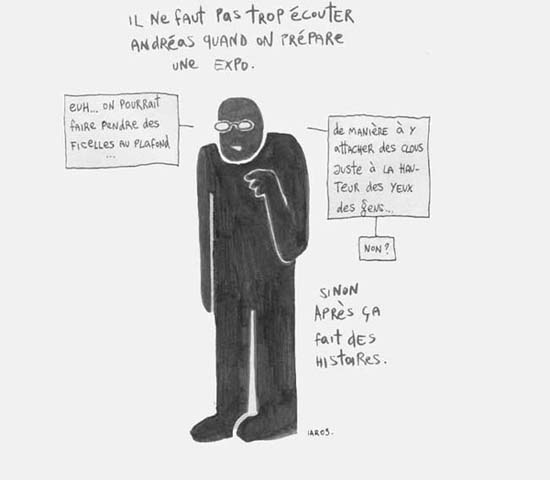 IL NE FAUT PAS TROP ÉCOUTER
ANDRÉAS QUAND ON PRÉPARE
UNE EXPO.
EUH... ON POURRAIT
FAIRE PENDRE DES
FICELLES AU PLAFOND
...
DE MANIÈRE À Y
ATTACHER DES CLOUS
JUSTE À LA HAU-
TEUR DES YEUX
DES GENS...
NON ?
SINON
APRÈS ÇA
FAIT DES
HISTOIRES.
IAROS.